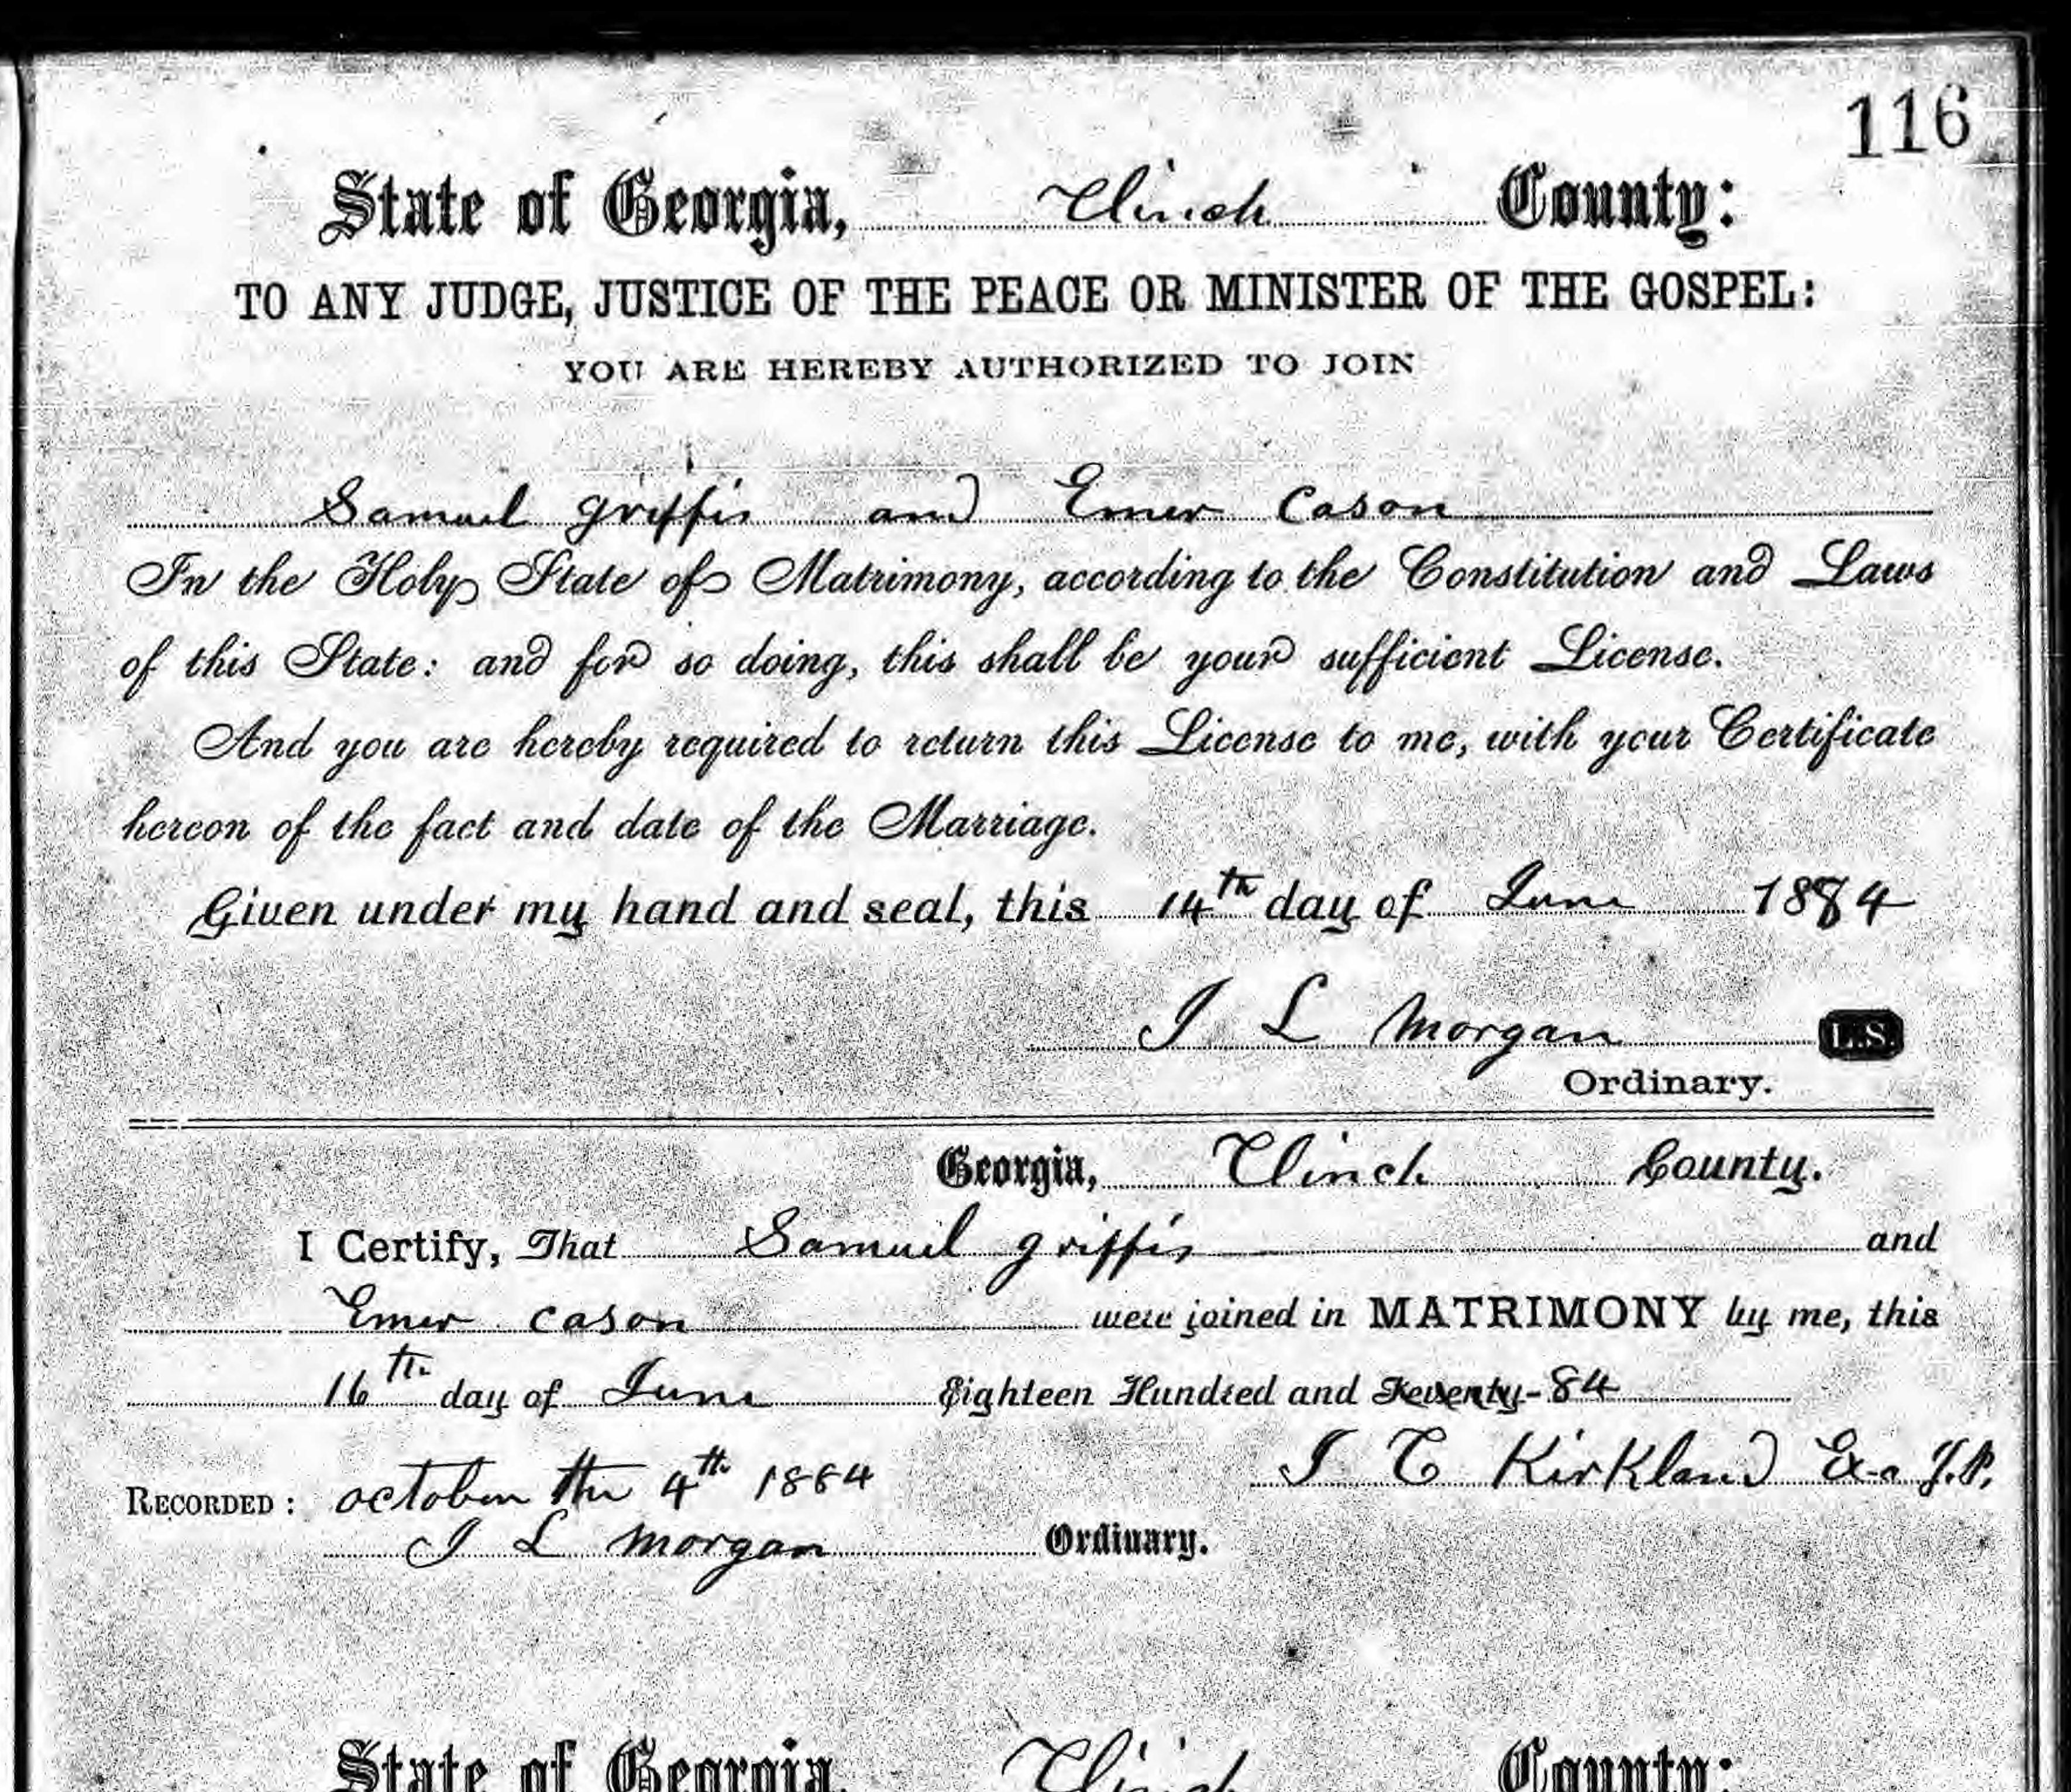 116
State of Georgia, Clinch County:
TO ANY JUDGE, JUSTICE OF THE PEACE OR MINISTER OF THE GOSPEL:
YOU ARE HEREBY AUTHORIZED TO JOIN
Samuel griffis and Emer Cason
In the Holy State of Matrimony, according to the Constitution and Laws
of this State: and for so doing, this shall be your sufficient License.
And you are hereby required to return this License to me, with your Certificate
hereon of the fact and date of the Marriage.
Given under my hand and seal, this 14th day of June 1884
J L Morgan L.S.
Ordinary.
Georgia, Clinch County.
I Certify, That Samuel griffis and
Emer Cason were joined in MATRIMONY by me, this
16th day of June Eighteen Hundred and Seventy-84
J C Kirkland Ex-o J.P.
RECORDED: october the 4th 1884
J L Morgan Ordinary.
State of Georgia, Clinch County: